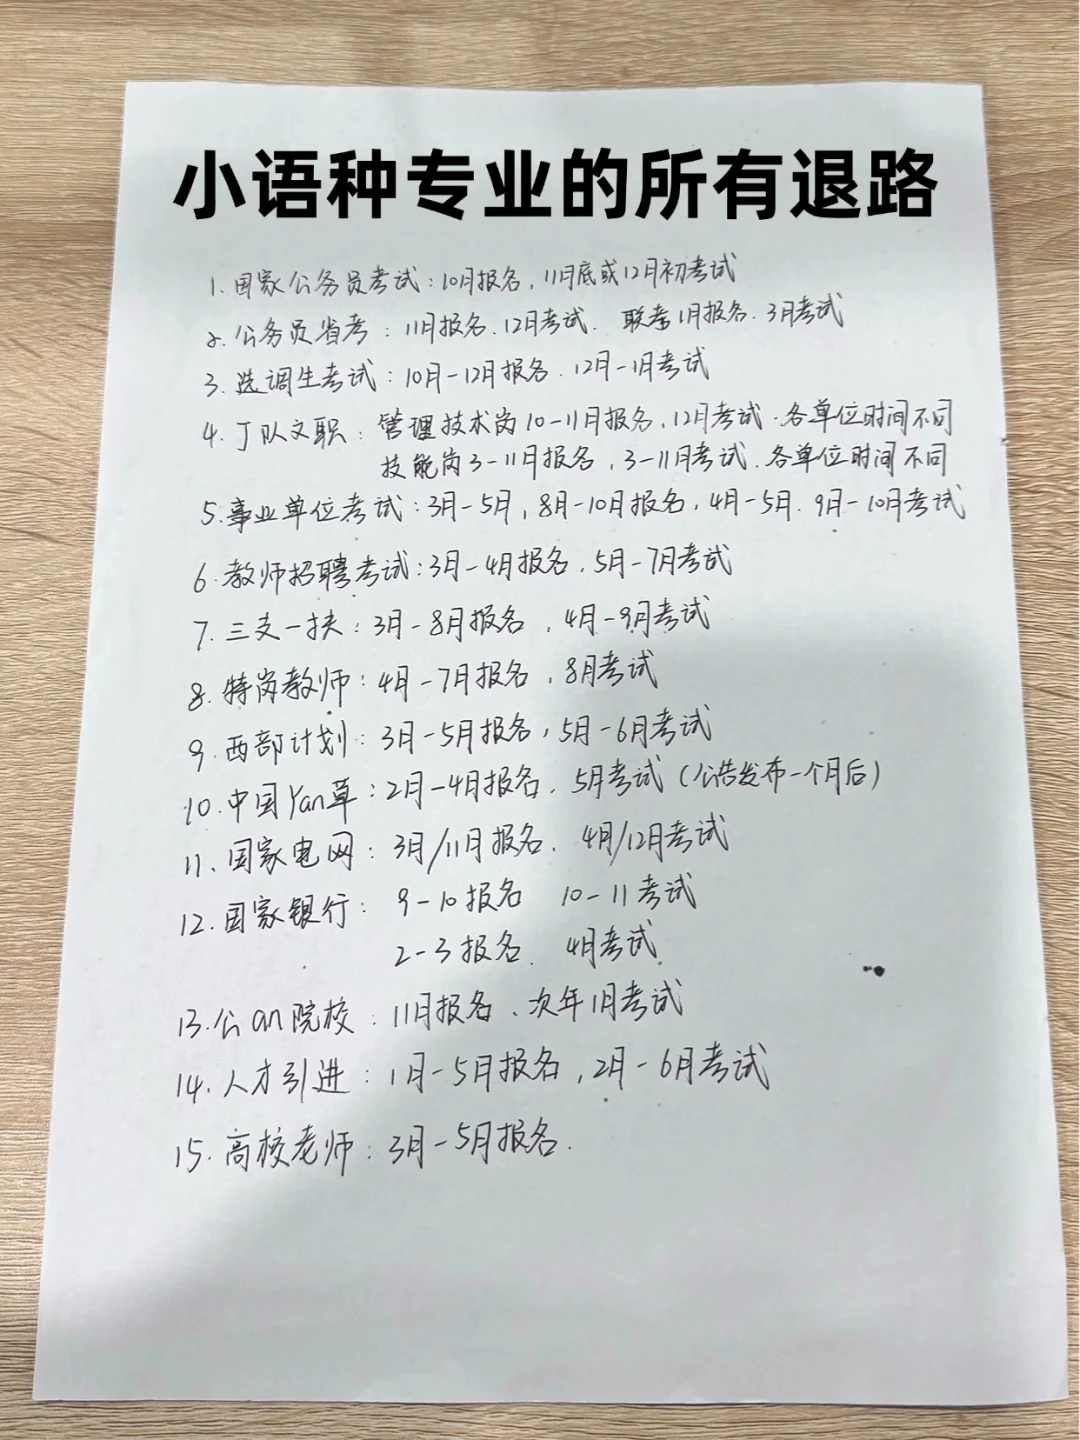 小语种专业的所有退路
1.国家公务员考试:10月报名,11月底或12月初考试
2.公务员省考:11月报名.12月考试. 联考1月报名.3月考试
3.选调生考试:10月-12月报名.12月-1月考试
4.丁队文职: 管理技术岗10-11月报名,12月考试.各单位时间不同
技能岗3-11月报名,3-11月考试.各单位时间不同
5.事业单位考试:3月-5月,8月-10月报名,4月-5月.9月-10月考试
6.教师招聘考试:3月-4月报名.5月-7月考试
7.三支一扶:3月-8月报名,4月-9月考试
8.特岗教师:4月-7月报名,8月考试
9.西部计划:3月-5月报名,5月-6月考试
10.中国Yan草:2月-4月报名.5月考试(公告发布一个月后)
11.国家电网:3月/11月报名. 4月/12月考试
12.国家银行: 9-10报名 10-11考试
2-3报名. 4月考试
13.公an院校:11月报名.次年1月考试
14.人才引进:1月-5月报名,2月-6月考试
15.高校老师:3月-5月报名.